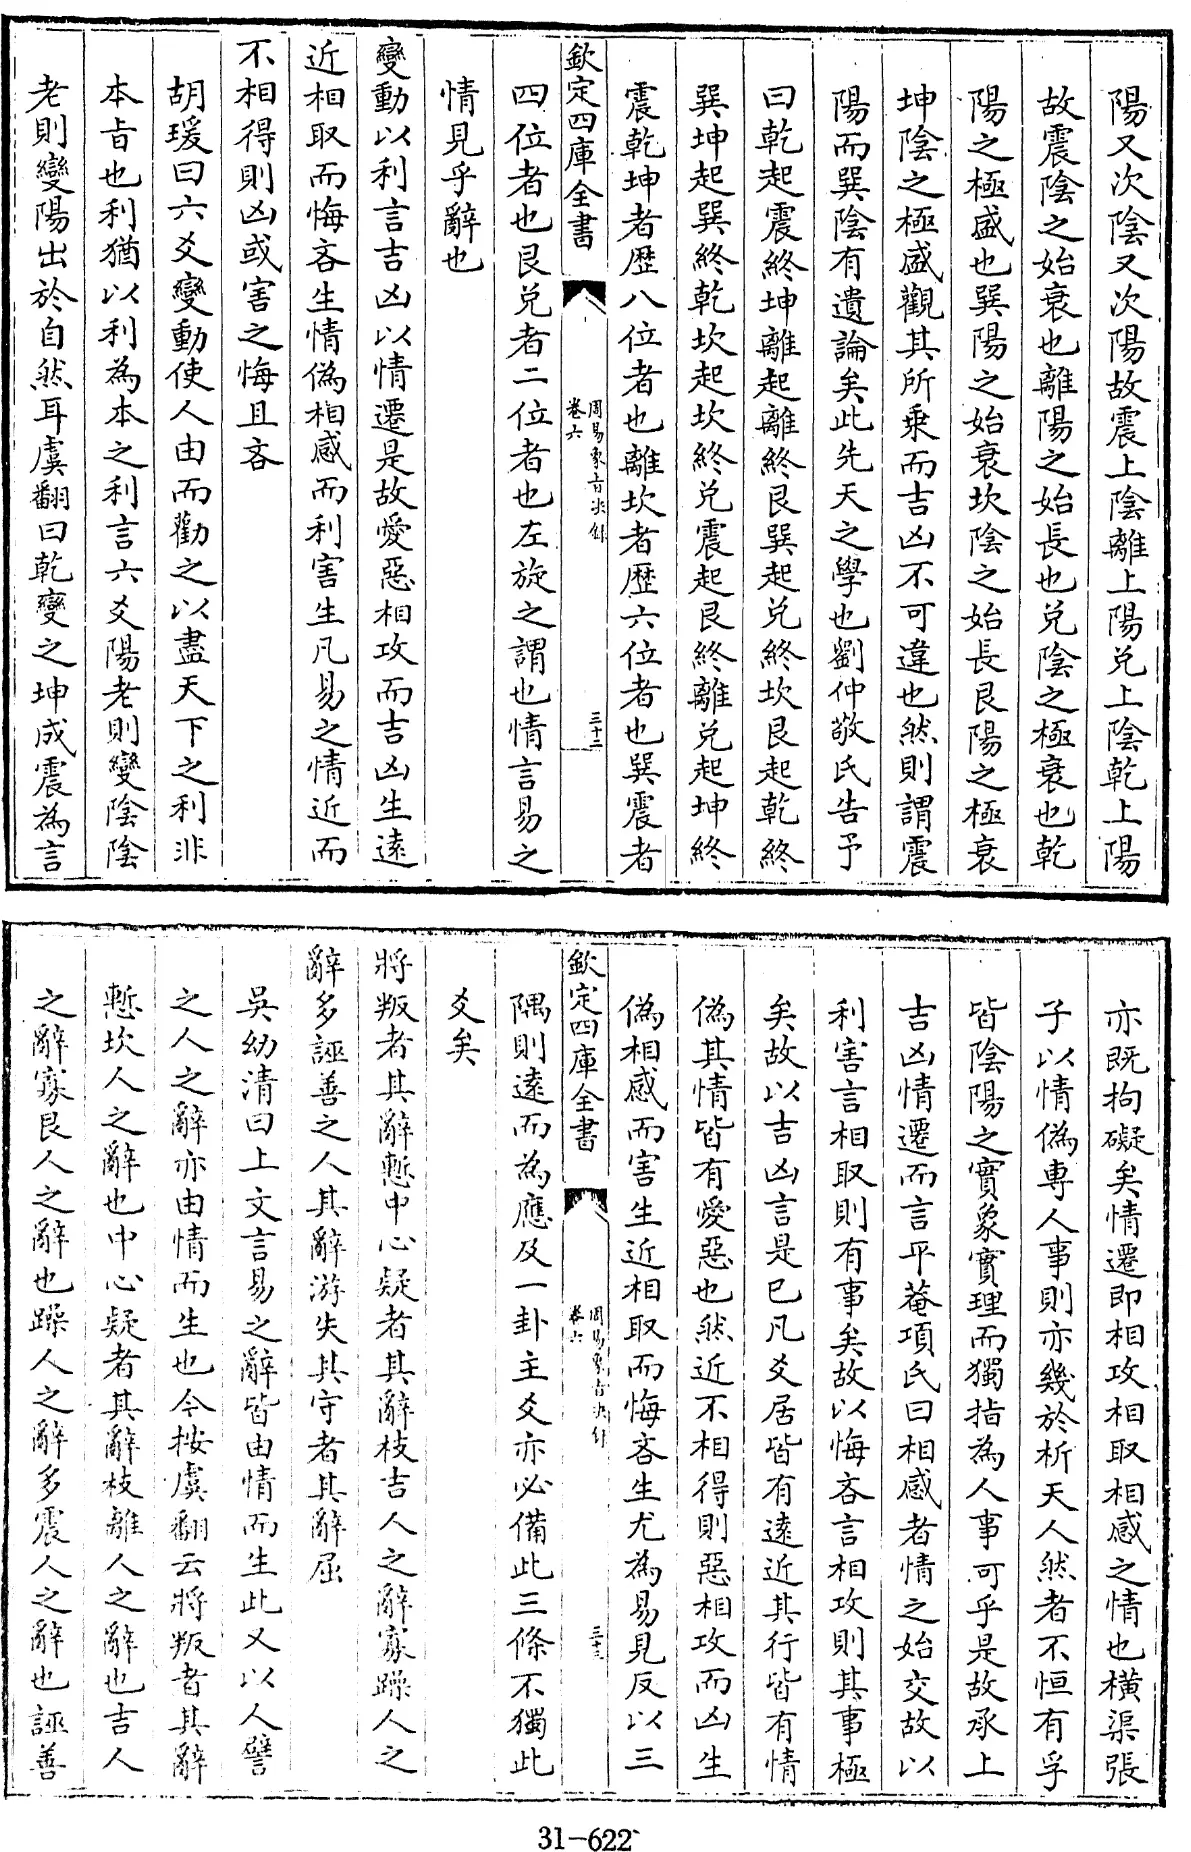 陽又次陰又次陽故震上陰離上陽兑上陰乾上陽
故震陰之始衰也離陽之始長也兑陰之極衰也乾
陽之極盛也巽陽之始衰坎陰之始長艮陽之極衰
坤陰之極盛觀其所乗而吉凶不可違也然則謂震
陽而巽陰有遺論矣此先天之學也劉仲敬氏告予
曰乾起震終坤離起離終艮巽起兑終坎艮起乾終
巽坤起巽終乾坎起坎終兑震起艮終離兑起坤終
震乾坤者歴八位者也離坎者歴六位者也巽震者
欽定四庫全書
周易象旨决録
卷六
三十二
四位者也艮兑者二位者也左旋之謂也情言易之
情見乎辭也
變動以利言吉凶以情遷是故愛惡相攻而吉凶生逺
近相取而悔吝生情偽相感而利害生凡易之情近而
不相得則凶或害之悔且吝
胡瑗曰六爻變動使人由而勸之以盡天下之利非
本旨也利猶以利為本之利言六爻陽老則變陰陰
老則變陽出於自然耳虞翻曰乾變之坤成震為言
亦既拘礙矣情遷即相攻相取相感之情也横渠張
子以情偽専人事則亦幾於析天人然者不恒有孚
皆陰陽之實象實理而獨指為人事可乎是故承上
吉凶情遷而言平菴項氏曰相感者情之始交故以
利害言相取則有事矣故以悔吝言相攻則其事極
矣故以吉凶言是已凡爻居皆有逺近其行皆有情
偽其情皆有愛惡也然近不相得則惡相攻而凶生
偽相感而害生近相取而悔吝生尤為易見反以三
欽定四庫全書
周易象旨决録
卷六
三十三
隅則逺而為應及一卦主爻亦必備此三條不獨此
爻矣
將叛者其辭慙中心疑者其辭枝吉人之辭寡躁人之
辭多誣善之人其辭游失其守者其辭屈
吳幼清曰上文言易之辭皆由情而生此又以人譬
之人之辭亦由情而生也今按虞翻云將叛者其辭
慙坎人之辭也中心疑者其辭枝離人之辭也吉人
之辭寡艮人之辭也躁人之辭多震人之辭也誣善
31-622